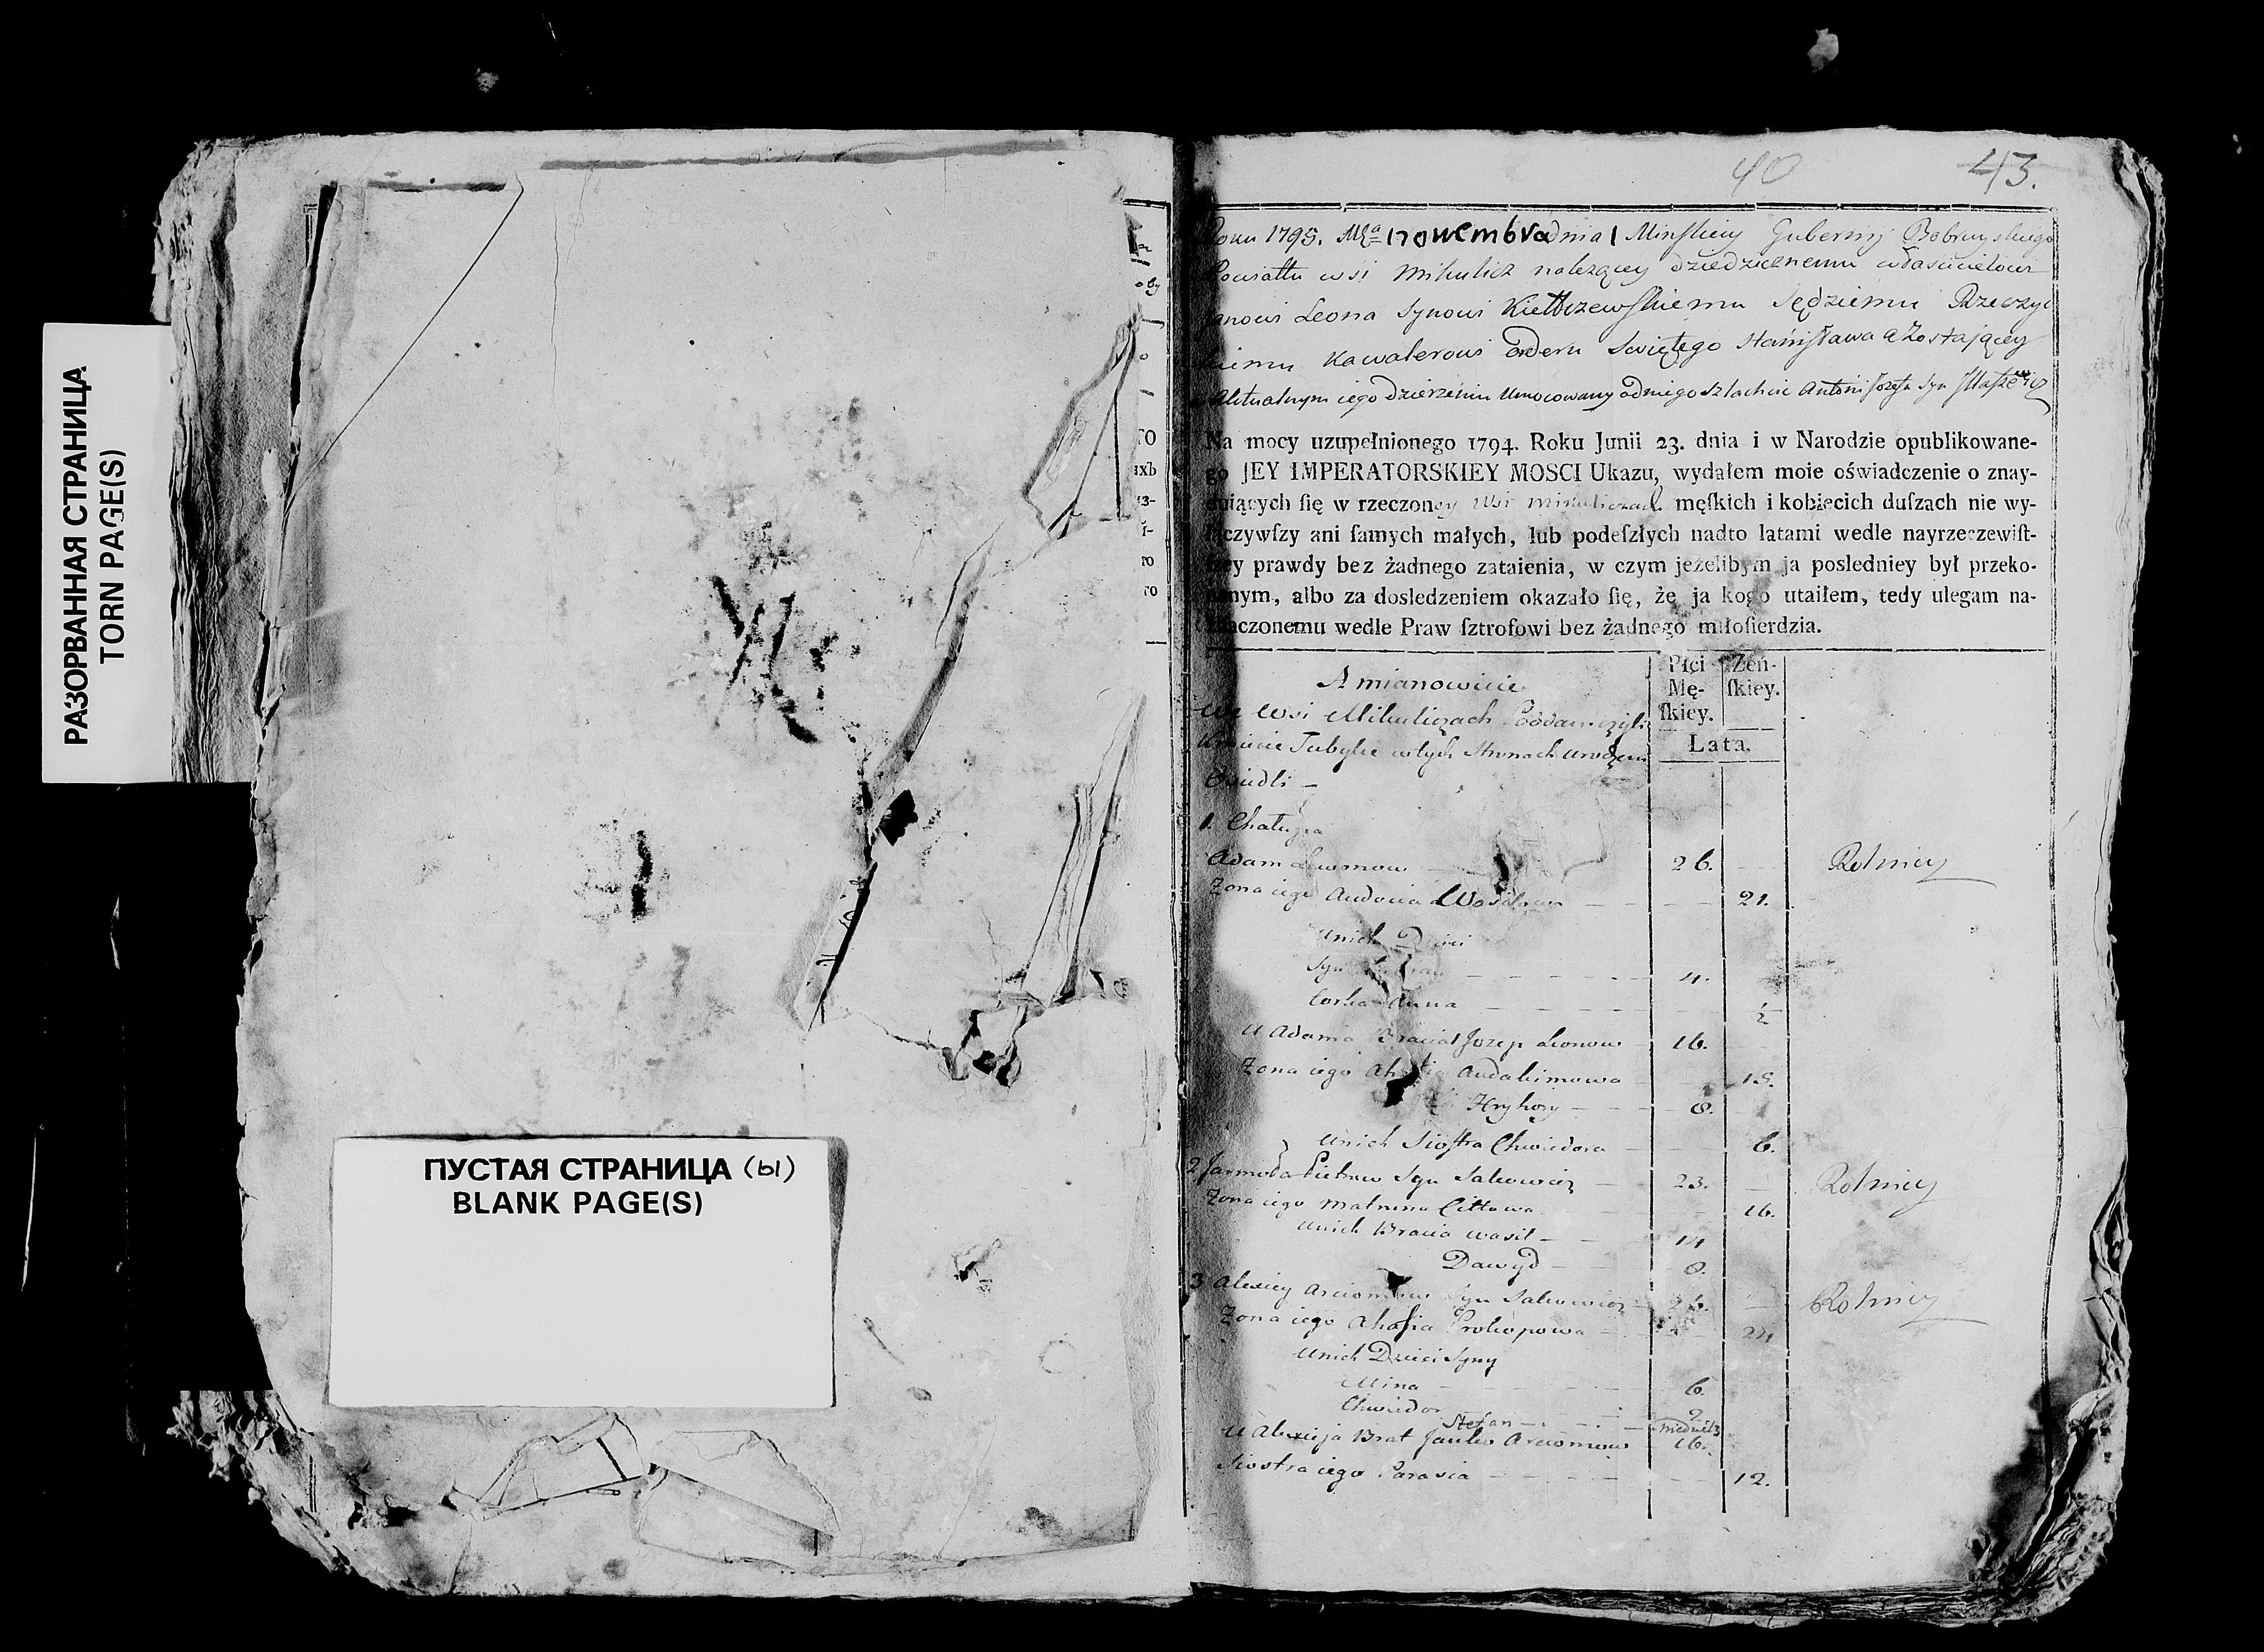 РАЗОРВАННАЯ СТРАНИЦА
TORN PAGE(S)
ПУСТАЯ СТРАНИЦА (ы)
BLANK PAGE(S)
40 43.
Roku 1795. Mca Nowembra dnia 1 Minskiey Gubernij Bobruyskiego
Powiattu wsi Mikulicz należącey dziedzicznemu włascicielowi
Janowi Leona Synowi Kiełbzewskiemu Sędziemu Rzeczyc
kiemu Kawalerowi Orderu Swiętego Stanisława a Zostającey
w Aktualnym iego dzierzeniu Umocowany od niego Szlachcic Antoni Jozefa Syn
Na mocy uzupełnionego 1794. Roku Junii 23. dnia i w Narodzie opublikowane-
go JEY IMPERATORSKIEY MOSCI Ukazu, wydałem moie oświadczenie o znay-
duiących ſię w rzeczoney Wsi Mikuliczach męſkich i kobiecich duſzach nie wy-
łączywſzy ani ſamych małych, lub podeſzłych nadto latami wedle nayrzeczewiſt-
ſzey prawdy bez żadnego zataienia, w czym jeżelibym ja posledniey był przeko-
nanym, albo za dosledzeniem okazało ſię, że ja kogo utaiłem, tedy ulegam na-
znaczonemu wedle Praw ſztrofowi bez żadnego miłoſierdzia.
A mianowicie
Płci Mę-ſkiey. Żeń-ſkiey.
Lata.
We Wsi Mikuliczach Poddani czyli
Kmiecie Tubylce w tych Stronach urodzeni
Osiedli –
1. Chałupa
Adam 26. Rolnicy
Zona iego Audocia Wasilowa 21.
Unich Dzieci
Syn 4.
Corka Anna ½
U Adama Bracia Jozep Leonow 16.
Zona iego Audakimowa 15.
Hryhory 8.
Unich Siostra Chwiedora 6.
2 Jarmoła Pietrow Syn Sakowicz 23. Rolnicy
Zona iego Matruna Cittowa 16.
Unich Bracia Wasil 14
Dawyd 8.
3 Alexiey Arciomow Syn Sakowicz 26. Rolnicy
Zona iego Ahafia Prokopowa 24
Unich Dzieci Syny
Mina 6.
Chwiedor 2.
Stefan
U Alexieja Brat Janko Arciomow 16.
Siostra iego Parasia 12.